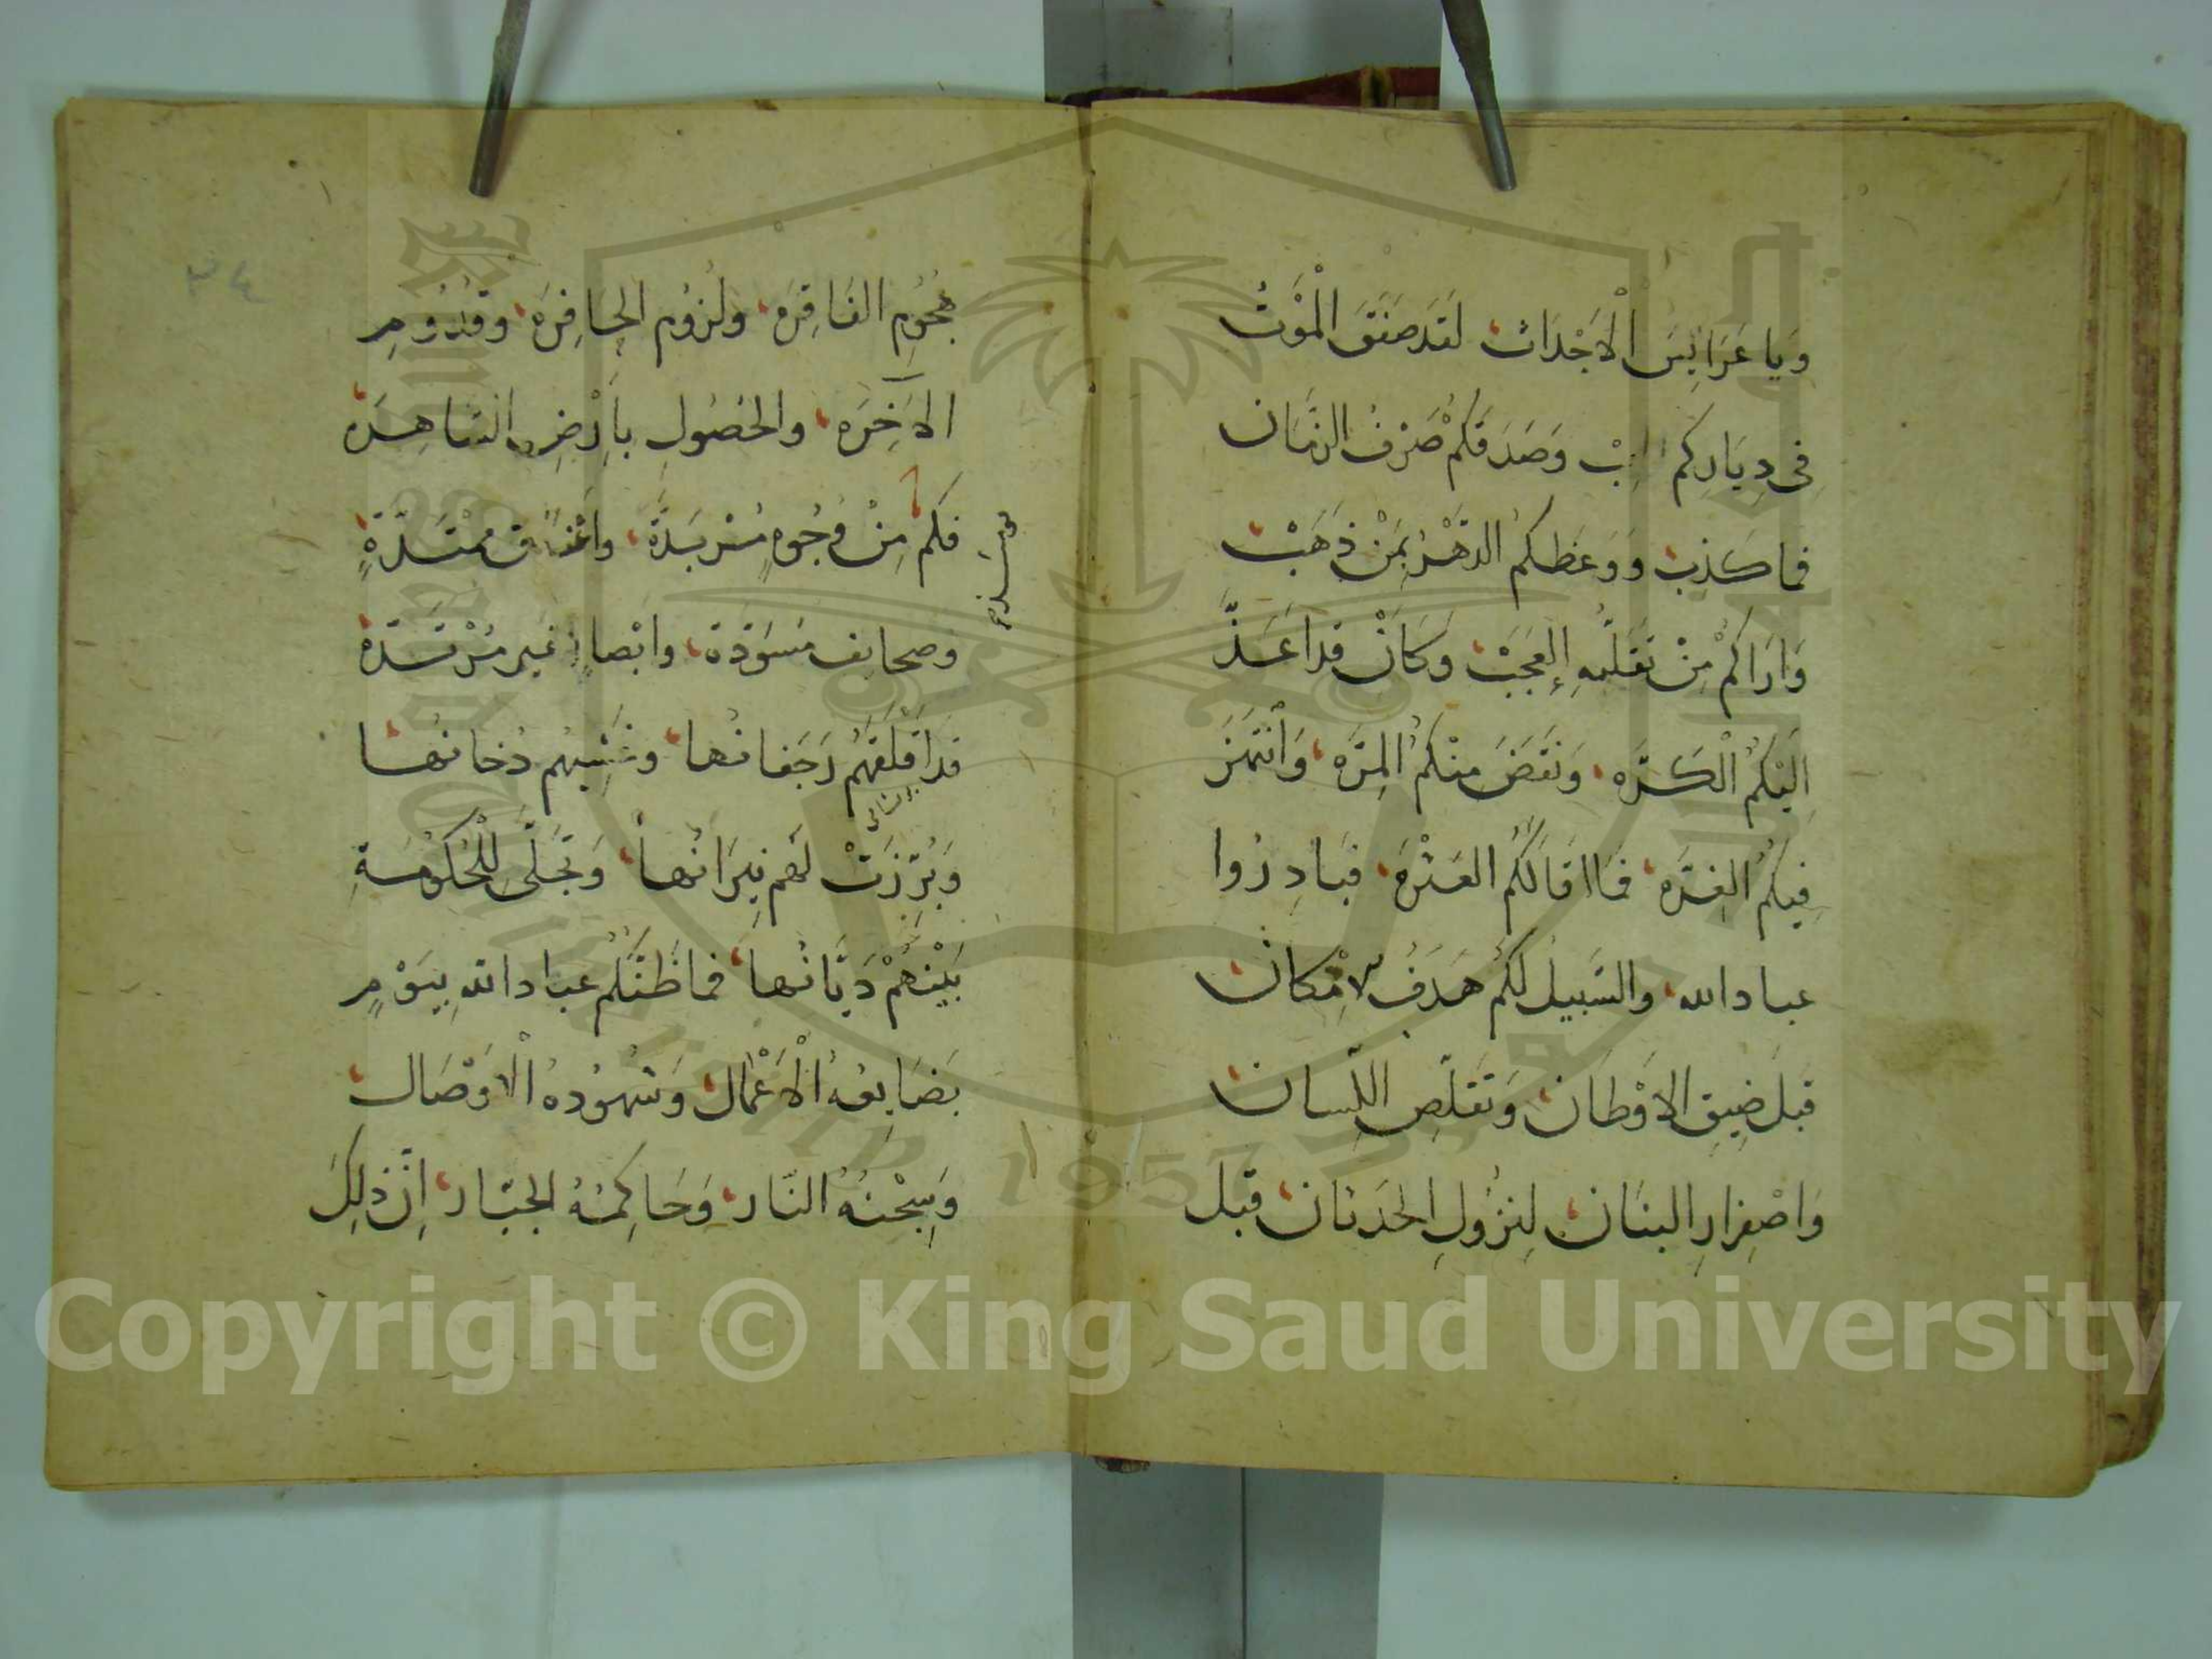 وَيا عَرَايِسَ الْاَجْدَاث لَقَد صَفَقَ الْمَوْتُ
فِى دِيَارِكم وَصَدَقكمْ صَرْفُ الزمَان
فما كذب وَوَعَظكم الدَّهْرُ بِمَنْ ذَهَبْ
وَارَاكمْ مِنْ تَقَلُّبِهِ العَجَبْ وَكَانْ قد اَعَدَّ
اِلَيْكمُ الْكَرَّه وَنَقَضَ مِنْكمُ المِرَّه وَانْتَهَزَ
فِيكمُ الغِرَّه فَمَا اقَالَكُم العَثْرَه فَبَادِرُوا
عباد الله والسَّبيل لكُم هَدَفُ الامْكان
قَبلَ ضِيقِ الاَوْطان وَتَقَلُّصِ اللِّسان
وَاصْفِرارِ البنَان لِنزُولِ الحَدثان قبْل
هجُومِ الفَاقِرَه ولزُوم الحَافِرَه وقدُومِ
الآخِرَه والحُصُولِ بِاَرْضِ السَّاهِرَه
فكم مِنْ وُجُوهٍ مُرْبَدَّة واَعْنَاق مُمْتَدَّةٍ
وصحايف مُسْوَدَّة وابْصارٍ غير مُرْتَدَّة
قد اَقْلَقَهُم رَجَفانُها وغَشِيَهُم دُخانُها
وَبُرِّزَتْ لَهم نِيرَانُها وَتَجَلَّى لِلْحُكُومَةِ
بَيْنَهُمْ دَيَّانُها فما ظَنُّكُم عباد الله بِيَوْمٍ
بَضَايِعُهُ الْاَعْمَال وَشُهُودُهُ الْاَوْصَال
وَسِجْنهُ النَّار وَحَاكِمُهُ الجبَّار اِنَّ ذلِكَ
٣٤
Copyright © King Saud University
1957